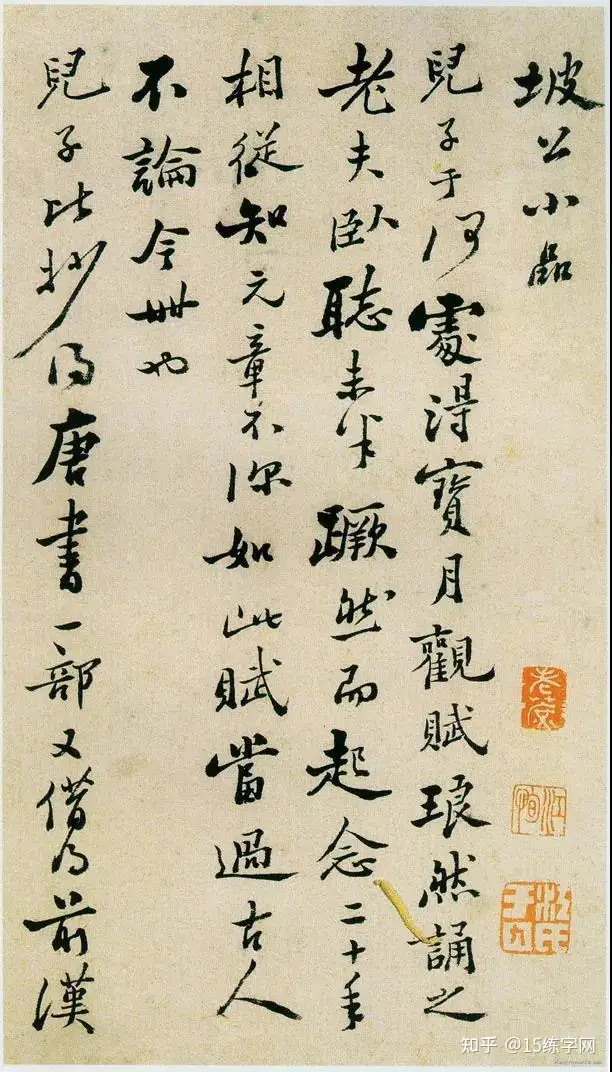 坡公小品
兒子于何處得寶月觀賦琅然誦之
老夫臥聽未半蹶然而起念二十年
相從知元章不深如此賦當過古人
不論今世也
兒子比抄得唐書一部又借得前漢
知乎 @15练字网